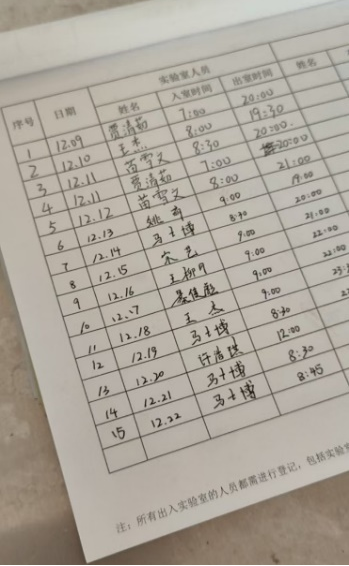 实验室人员
序号 日期 姓名 入室时间 出室时间 姓名
1 12.09 贾清茹 7:00 20:00
2 12.10 王杰 8:00 19:30
3 12.11 苗雪文 8:30 20:00
4 12.11 贾清茹 7:00 20:00
5 12.12 苗雪文 8:00 21:00
6 12.13 9:00 19:00
7 12.14 马士博 8:30 20:00
8 12.15 宋艺 9:00 21:00
9 12.16 9:00 22:00
10 12.17 9:00 22:00
11 12.18 王杰 9:00
12 12.19 马士博 8:30
13 12.20 12:00
14 12.21 马士博 8:30
15 12.22 马士博 8:45
注：所有出入实验室的人员都需进行登记，包括实验室